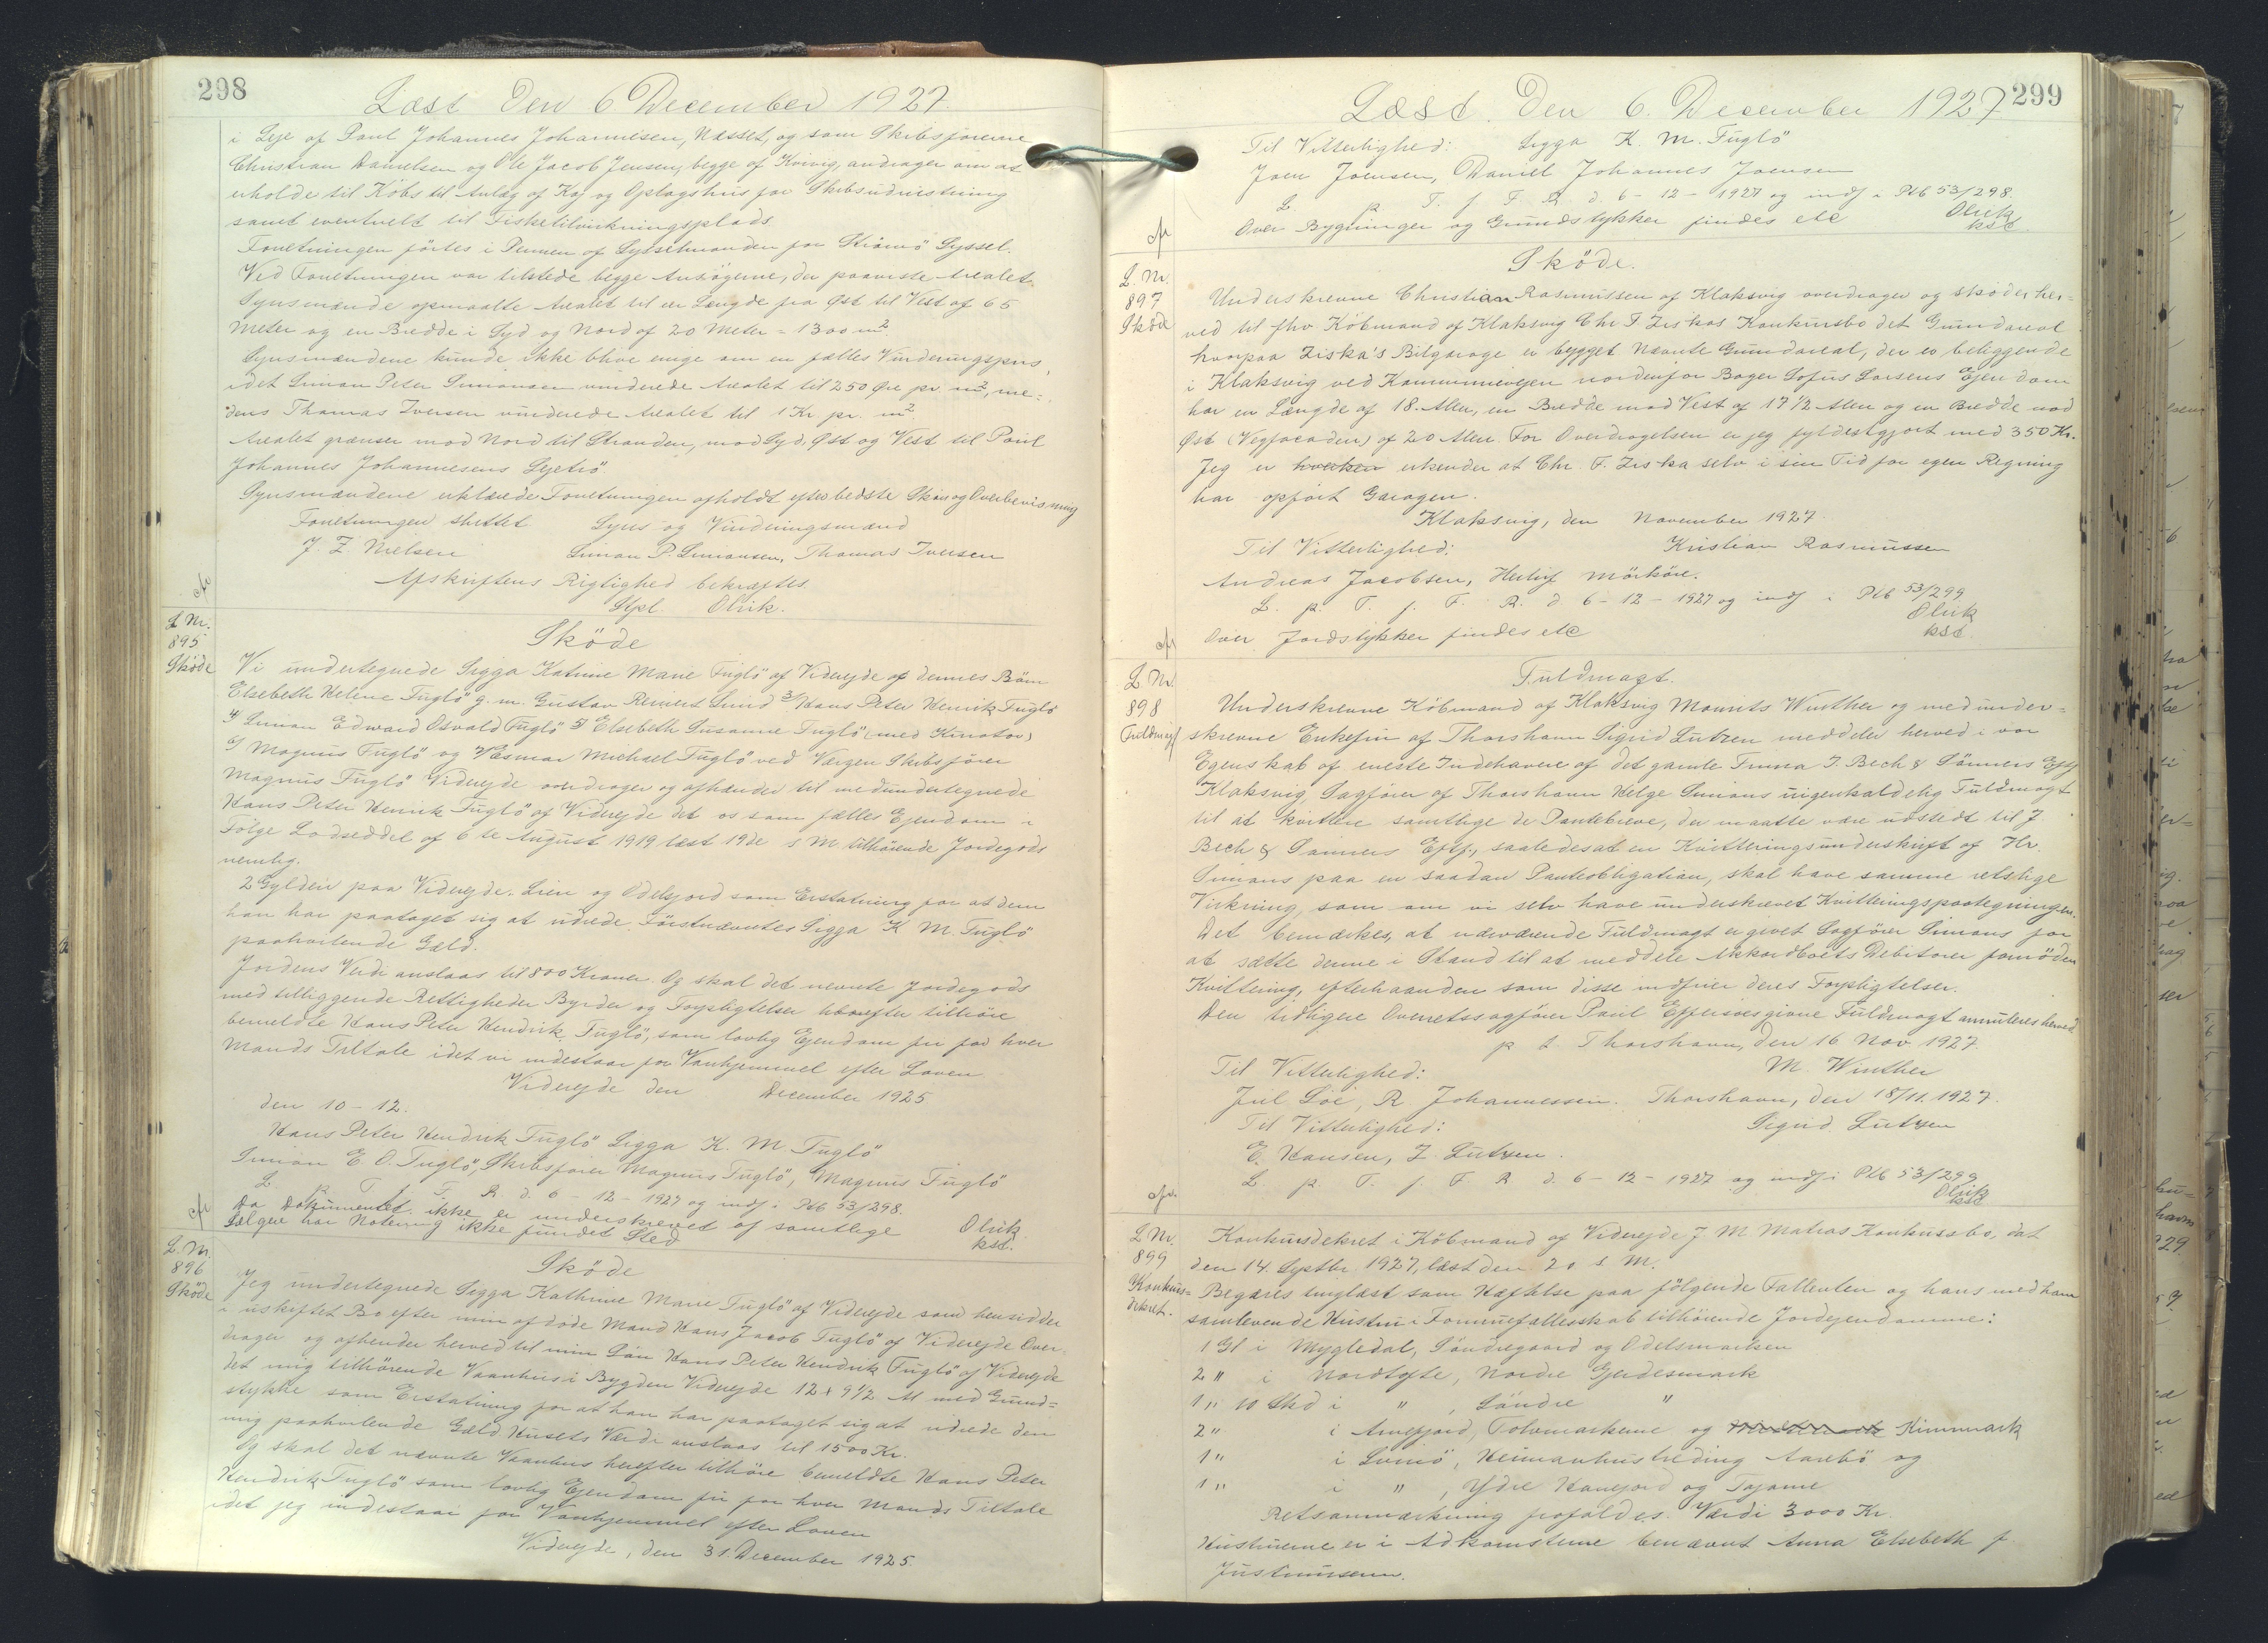 298
Læst Den 6 December 1927.
i Leje af Paul Johannes Johannesen, Næsset, og som Skibsførerne
Christian Danielsen og Ole Jacob Jensen, begge af Kvivig, andrager om at
erholde til Købs til Anlæg af Kaj og Oplagshus for Skibsudrustning
samt eventuelt til Fisketilvirkningsplads.
Forretningen førtes i Pennen af Sysselmanden for Strömö Syssel.
Ved Forretningen var tilstede begge Ansøgerne, der paaviste Arealet.
Synsmænde opmaalte Arealet til en Længde fra Øst til Vest af 65
Meter og en Bredde i Syd og Nord af 20 Meter = 1300 m²
Synsmændene kunde ikke blive enige om en fælles Vurderingspris,
idet Simon Peter Simonsen vurderede Arealet til 250 Øre pr. m², me=
dens Thomas Iversen vurderede Arealet til 1 Kr. pr. m²
Arealet grænser mod Nord til Stranden, mod Syd, Øst og Vest til Paul
Johannes Johannesens Lejetrö.
Synsmændene erklærede Forretningen afholdt efter bedste Skøn og Overbevisning
Forretningen sluttet Syns og Vurderingsmænd
J. Z. Nielsen Simon P. Simonsen, Thomas Iversen
Afskriftens Rigtighed bekræftes.
Stpl. Olrik.
L Nr.
895
Sköde
Sköde
Vi undertegnede Sigga Katrine Marie Fuglö af Viderejde af dennes Börn
Elsebeth Helene Fuglö g. m. Gustav Reinert Lund 3/ Hans Peter Henrik Fuglö
4/ Simon Edward Osvald Fuglö 5/ Elsebeth Susanne Fuglö (med Kurator)
6/ Magnus Fuglö og 7/ Esmar Michael Fuglö ved Værgen Skibsfører
Magnus Fuglö Viderejde overdrager og afhænder til medundertegnede
Hans Peter Henrik Fuglö af Viderejde det os som fælles Ejendom i
Følge Lodseddel af 6te August 1919 læst 19de s M tilhørende Jordegods
nemlig.
2 Gylden paa Viderejde. Lien og Odelsjord som Erstatning for at dem
han har paataget sig at udrede Förstnævntes Sigga K M. Fuglö
paahvilende Gæld.
Jordens Værdi anslaas til 800 Kroner. Og skal det nævnte Jordegods
med tilliggende Rettigheder Byrder og Forpligtelser herefter tilhøre
bemeldte Hans Peter Hendrik Fuglö, som lovlig Ejendom fri for hver
Mands Tiltale idet vi indestaar for Vanhjemmel efter Loven
Viderejde den December 1925
den 10-12.
Hans Peter Hendrik Fuglö Sigga K. M. Fuglö
Simon E. O. Fuglö, Skibsfører Magnus Fuglö, Magnus Fuglö
L. p. T. f. F. R. d. 6-12-1927 og indf. i Ptb 53/298.
Da Dokumentet ikke er underskrevet af samtlige
Sælgere har Notering ikke fundet Sted
Olrik
kst.
L. Nr.
896
Sköde
Sköde
Jeg undertegnede Sigga Kathrine Marie Fuglö af Viderejde som hensidder
i uskiftet Bo efter min afdöde Mand Hans Jacob Fuglö af Viderejde Over-
drager og afhender herved til min Sön Hans Peter Hendrik Fuglö af Viderejde
det mig tilhørende Vaanhus i Bygden Viderejde 12 x 9½ Al med Grund=
stykke som Erstatning for at han har paataget sig at udrede den
mig paahvilende Gæld Husets Værdi anslaas til 1500 Kr.
Og skal det nævnte Vaanhus herefter tilhöre bemeldte Hans Peter
Hendrik Fuglö som lovlig Ejendom fri for hver Mands Tiltale
idet jeg indestaar for Vanhjemmel efter Loven
Viderejde, den 31. December 1925.
Læst. Den 6. December 1927
299
Til Vitterlighed: Sigga K. M. Fuglö
Joen Joensen, Daniel Johannes Joensen
L p. T. f. F. R. d. 6-12-1927 og indf. i Ptb 53/298.
Over Bygninger og Grundstykker findes etc
Olrik
kst.
L. Nr.
897
Sköde
Sköde.
Underskrevne Christian Rasmussen af Klaksvig overdrager og sköder her=
ved til fhv Købmand af Klaksvig Chr F. Ziskas Konkursbo det Grundareal
hvorpaa Ziska's Bilgarage er bygget Nævnte Grundareal, der er beliggende
i Klaksvig ved Kommunevejen nordenfor Bager Sofus Larsens Ejendom
har en Længde af 18. Alen, en Bredde mod Vest af 17½ Alen og en Bredde mod
Øst (Vegfacaden) af 20 Alen. For Overdragelsen er jeg fyldestgjort med 350 Kr.
Jeg er hverken erkender at Chr. F. Ziska selv i sin Tid for egen Regning
har opført Garagen.
Klaksvig, den November 1927.
Til Vitterlighed: Kristian Rasmussen
Andreas Jacobsen, Herluf Mörköre.
L. p. T. f. F. R. d 6-12-1927 og indf i Ptb 53/299
Over Jordstykker findes etc
Olrik
kst
L. Nr.
898
Fuldmagt
Fuldmagt.
Underskrevne Köbmand af Klaksvig Mourits Winther og medunder=
skrevne Enkefru af Thorshavn Sigrid Lutzen meddeler herved i vor
Egenskab af eneste Indehavere af det gamle Firma J. Bech & Sönners Eftf
Klaksvig, Sagfører af Thorshavn Helge Simons uigenkaldelig Fuldmagt
til at kvittere samtlige de Pantebreve, der maatte være udstedt til J
Bech & Sønners Eftf., saaledes at en Kvitteringsunderskrift af Hr.
Simons paa en saadan Panteobligation, skal have samme retslige
Virkning, som om vi selv have underskrevet Kvitteringspaategningen.
Det bemærkes, at nærværende Fuldmagt er givet Sagfører Simons for
at sætte denne i Stand til at meddele Akkordboets Debitorer fornöden
Kvittering, efterhaanden som disse indfrier deres Forpligtelser.
Den tidligere Overretssagfører Paul Effersøe givne Fuldmagt annuleres herved
p t. Thorshavn, den 16 Nov. 1927.
Til Vitterlighed: M. Winther
Jul. Loe, R. Johannessen. Thorshavn, den 18/11. 1927.
Til Vitterlighed: Sigrid. Lutzen
E. Hansen, J. Lutzen.
L. p. T. f. F R d. 6-12-1927 og indf i Ptb 53/299
Olrik
kst
L Nr.
899
Konkurs=
dekret.
Konkursdekret i Købmand af Viderejde J. M Matras Konkursbo, dat
den 14. Septbr. 1927, læst den 20 s M.
Begæres tinglæst som Hæftelse paa følgende Fallenten og hans med ham
samlevende Hustru i Formuefællesskab tilhørende Jordejendomme:
1 Gl i Mygledal, Söndregaard og Odelsmarken
2 " i Nordtofte, Nordre Gerdesmark
1 " 10 Skd i " , Söndre "
2 " i Arnefjord, Tolumarkerne og Kinnmark
1 " i Svinö, Heimanhustreding Aarebö og
1 " i " , Ydre Hanejord og
Retsanmærkning frafaldes. Værdi 3000 Kr.
Hustruerne er i Adkomsterne benævnt Anna Elsebeth f.
Justinussen.